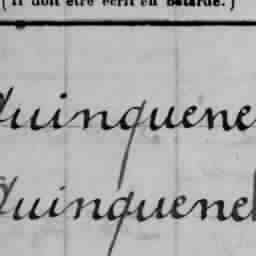 (Il doit être écrit en bâtarde.)
Quinquenel
Quinquenel